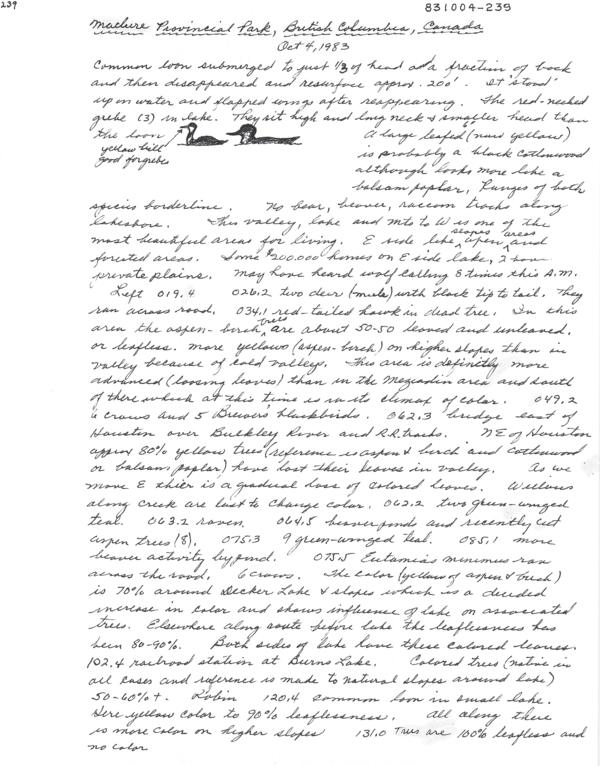 239
831004-239
Maclure Provincial Park, British Columbia, Canada
Oct 4, 1983
Common loon submerged to just 1/3 of head and a fraction of back
and then disappeared and resurface approx. 200'. It "stood"
up on water and flapped wings after reappearing. The red-necked
grebe (3) in lake. They sit high and long neck & smaller head than
the loon
yellow bill
good for grebe
A large leafed (now yellow)
is probably a black cottonwood
although looks more like a
balsam poplar, Ranges of both
species borderline. No bear, beaver, raccoon tracks along
lakeshore. This valley, lake and mts to W is one of the
most beautiful areas for living. E side lake slopes, open areas and
forested areas. Some $200,000 homes on E side lake, 2 have
private plains. May have heard wolf calling 8 times this A.M.
Left 019.4 026.2 two deer (mule) with black tip to tail. They
ran across road. 034.1 red-tailed hawk in dead tree. In this
area the aspen-birch trees are about 50-50 leaved and unleaved.
or leafless. More yellows (aspen-birch) on higher slopes than in
valley because of cold valleys. This area is definitly more
advanced (loosing leaves) than in the Meziadin area and south
of there which at this time is in its climax of color. 049.2
6 crows and 5 Brewer's blackbirds. 062.3 bridge east of
Houston over Buckley River and R.R. tracks. NE of Houston
approx 80% yellow trees (reference is aspen & birch and cottonwood
or balsam poplar) have lost their leaves in valley. As we
move E thier is a gradual loss of colored leaves. Willows
along creek are last to change color. 062.2 two green-winged
teal. 063.2 raven. 064.5 beaver ponds and recently cut
aspen trees (8). 075.3 9 green-winged teal. 085.1 more
beaver activity by pond. 075.5 Eutamias minimus ran
across the road, 6 crows. The color (yellow of aspen & birch)
is 70% around Decker Lake & slopes which is a decided
increase in color and shows influence of lake on associated
trees. Elsewhere along route before lake the leaflessness has
been 80-90%. Both sides of lake have these colored leaves.
102.4 railroad station at Burns Lake. Colored trees (native in
all cases and reference is made to natural slopes around lake)
50-60%+. Robin 120.4 common loon in small lake.
Here yellow color to 90% leaflessness. All along there
is more color on higher slopes 131.0 Trees are 100% leafless and
no color